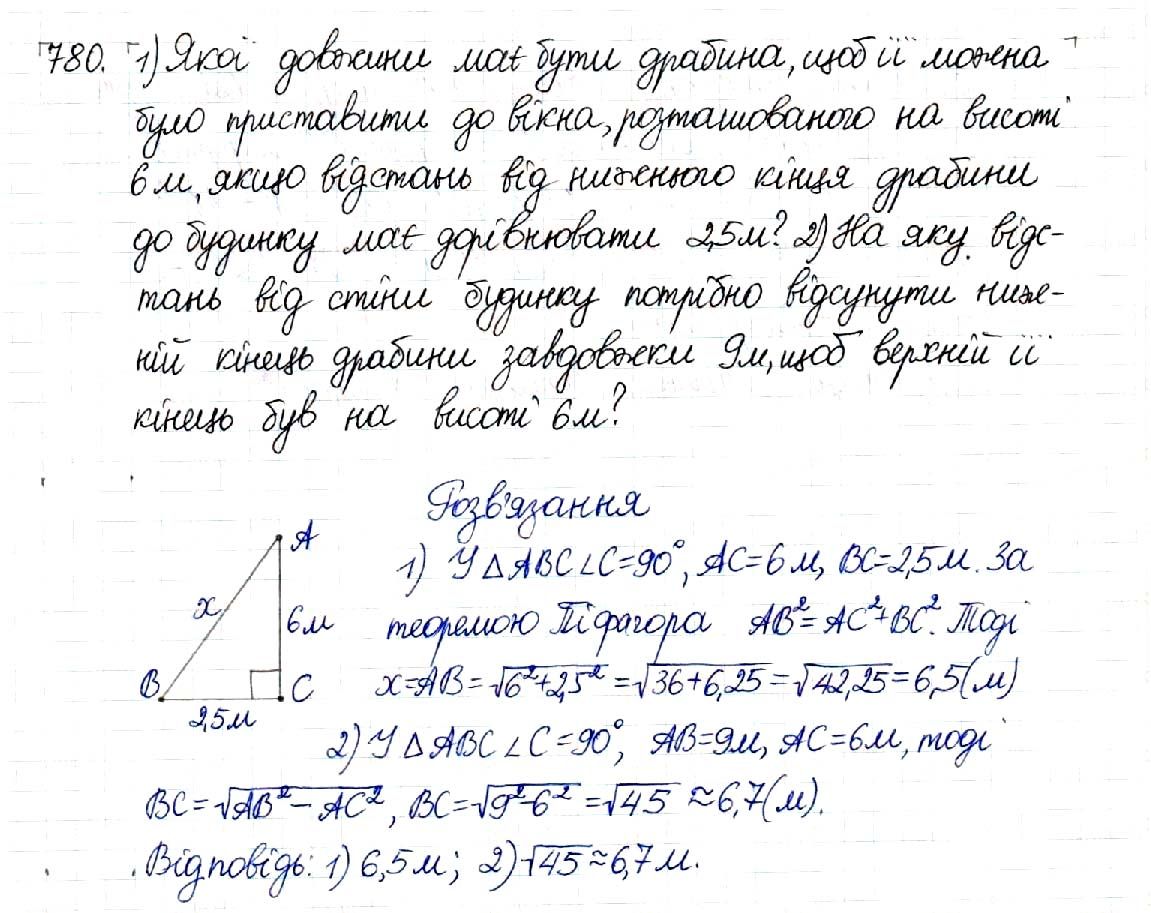 780. 1) Якої довжини має бути драбина, щоб її можна
було приставити до вікна, розташованого на висоті
6 м, якщо відстань від нижнього кінця драбини
до будинку має дорівнювати 2,5 м? 2) На яку відс-
тань від стіни будинку потрібно відсунути ниж-
ній кінець драбини завдовжки 9 м, щоб верхній її
кінець був на висоті 6 м?
Розв'язання
A
x
6 м
B
C
2,5 м
1) У △ABC ∠C=90°, AC=6 м, BC=2,5 м. За
теоремою Піфагора AB²=AC²+BC². Тоді
x=AB=√(6²+2,5²)=√(36+6,25)=√42,25=6,5(м)
2) У △ABC ∠C=90°, AB=9 м, AC=6 м, тоді
BC=√(AB²−AC²), BC=√(9²−6²)=√45≈6,7(м).
Відповідь: 1) 6,5 м; 2) √45≈6,7 м.